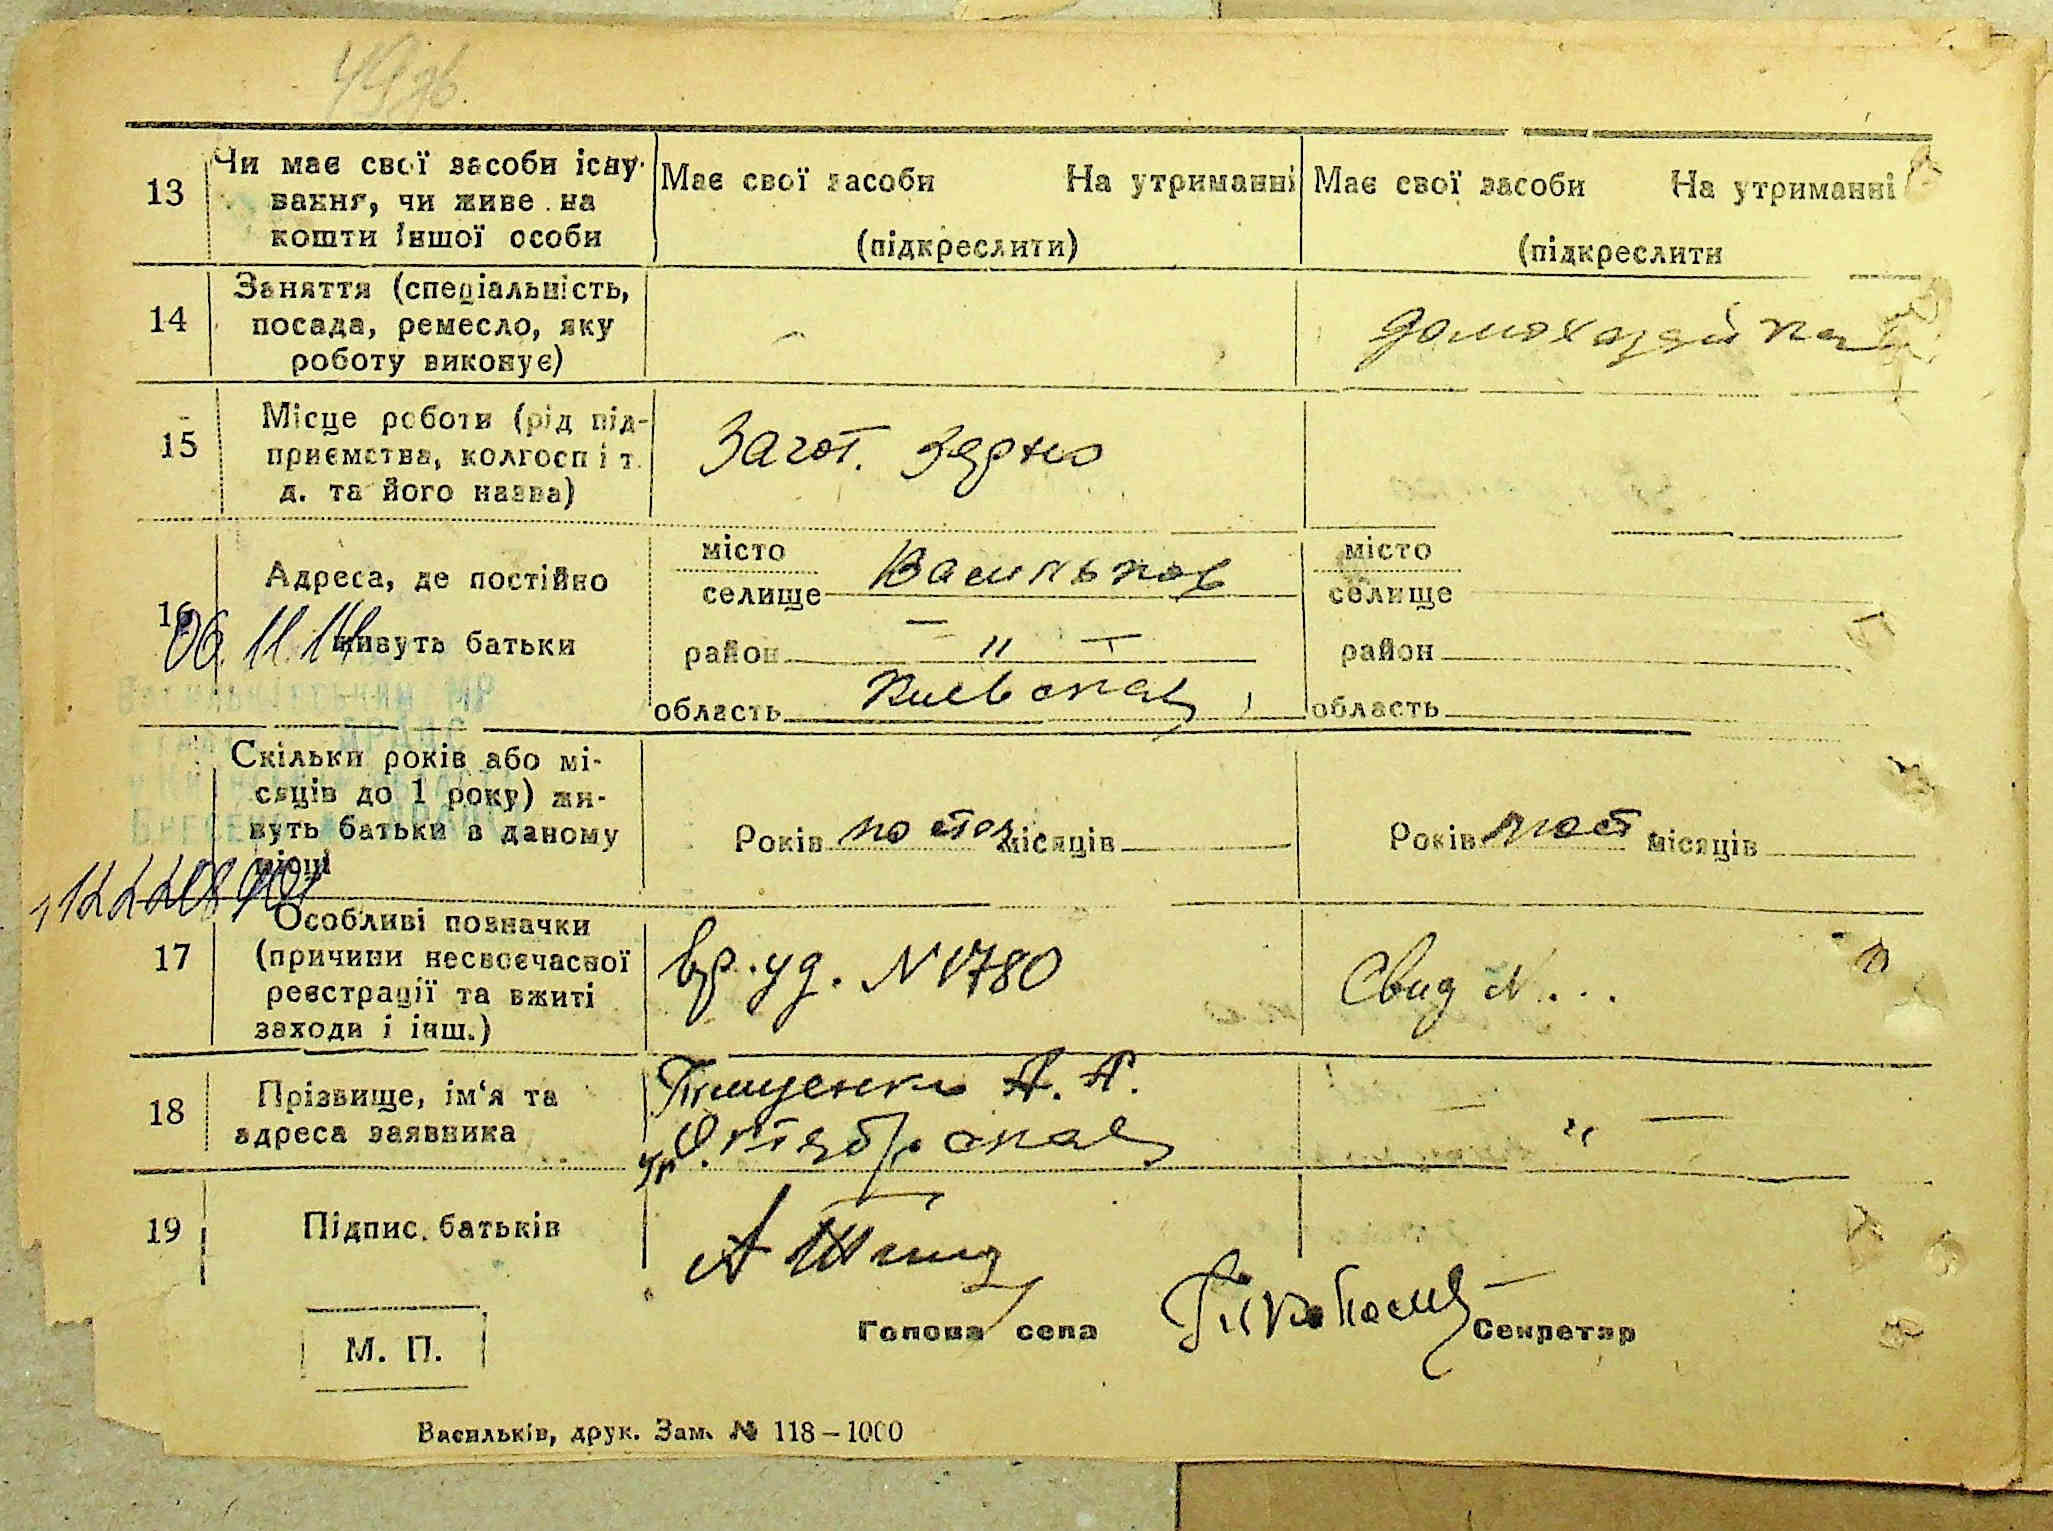 49зв.
13 Чи має свої засоби існу- Має свої засоби На утриманні Має свої засоби На утриманні
вання, чи живе на
кошти іншої особи (підкреслити) (підкреслити
14 Заняття (спеціальність,
посада, ремесло, яку домохазяйка
роботу виконує)
15 Місце роботи (рід під- Загот. Зерно
приємства, колгосп і т.
д. та його назва)
місто місто
16 Адреса, де постійно Васильков
селище селище
06.11.14 живуть батьки район — " — район
область Киевская область
Скільки років або мі-
сяців до 1 року) жи-
вуть батьки в даному Років постоя місяців Років пост місяців
місці
Особливі позначки
17 (причини несвоєчасної вр. уд. N 1780 Свид N...
реєстрації та вжиті
заходи і інш.)
18 Прізвище, ім‘я та Тищенко А. А. — " —
адреса заявника ул. Октябрьская
19 Підпис батьків
М. П. Голова села Секретар
Васильків, друк. Зам. № 118–1000